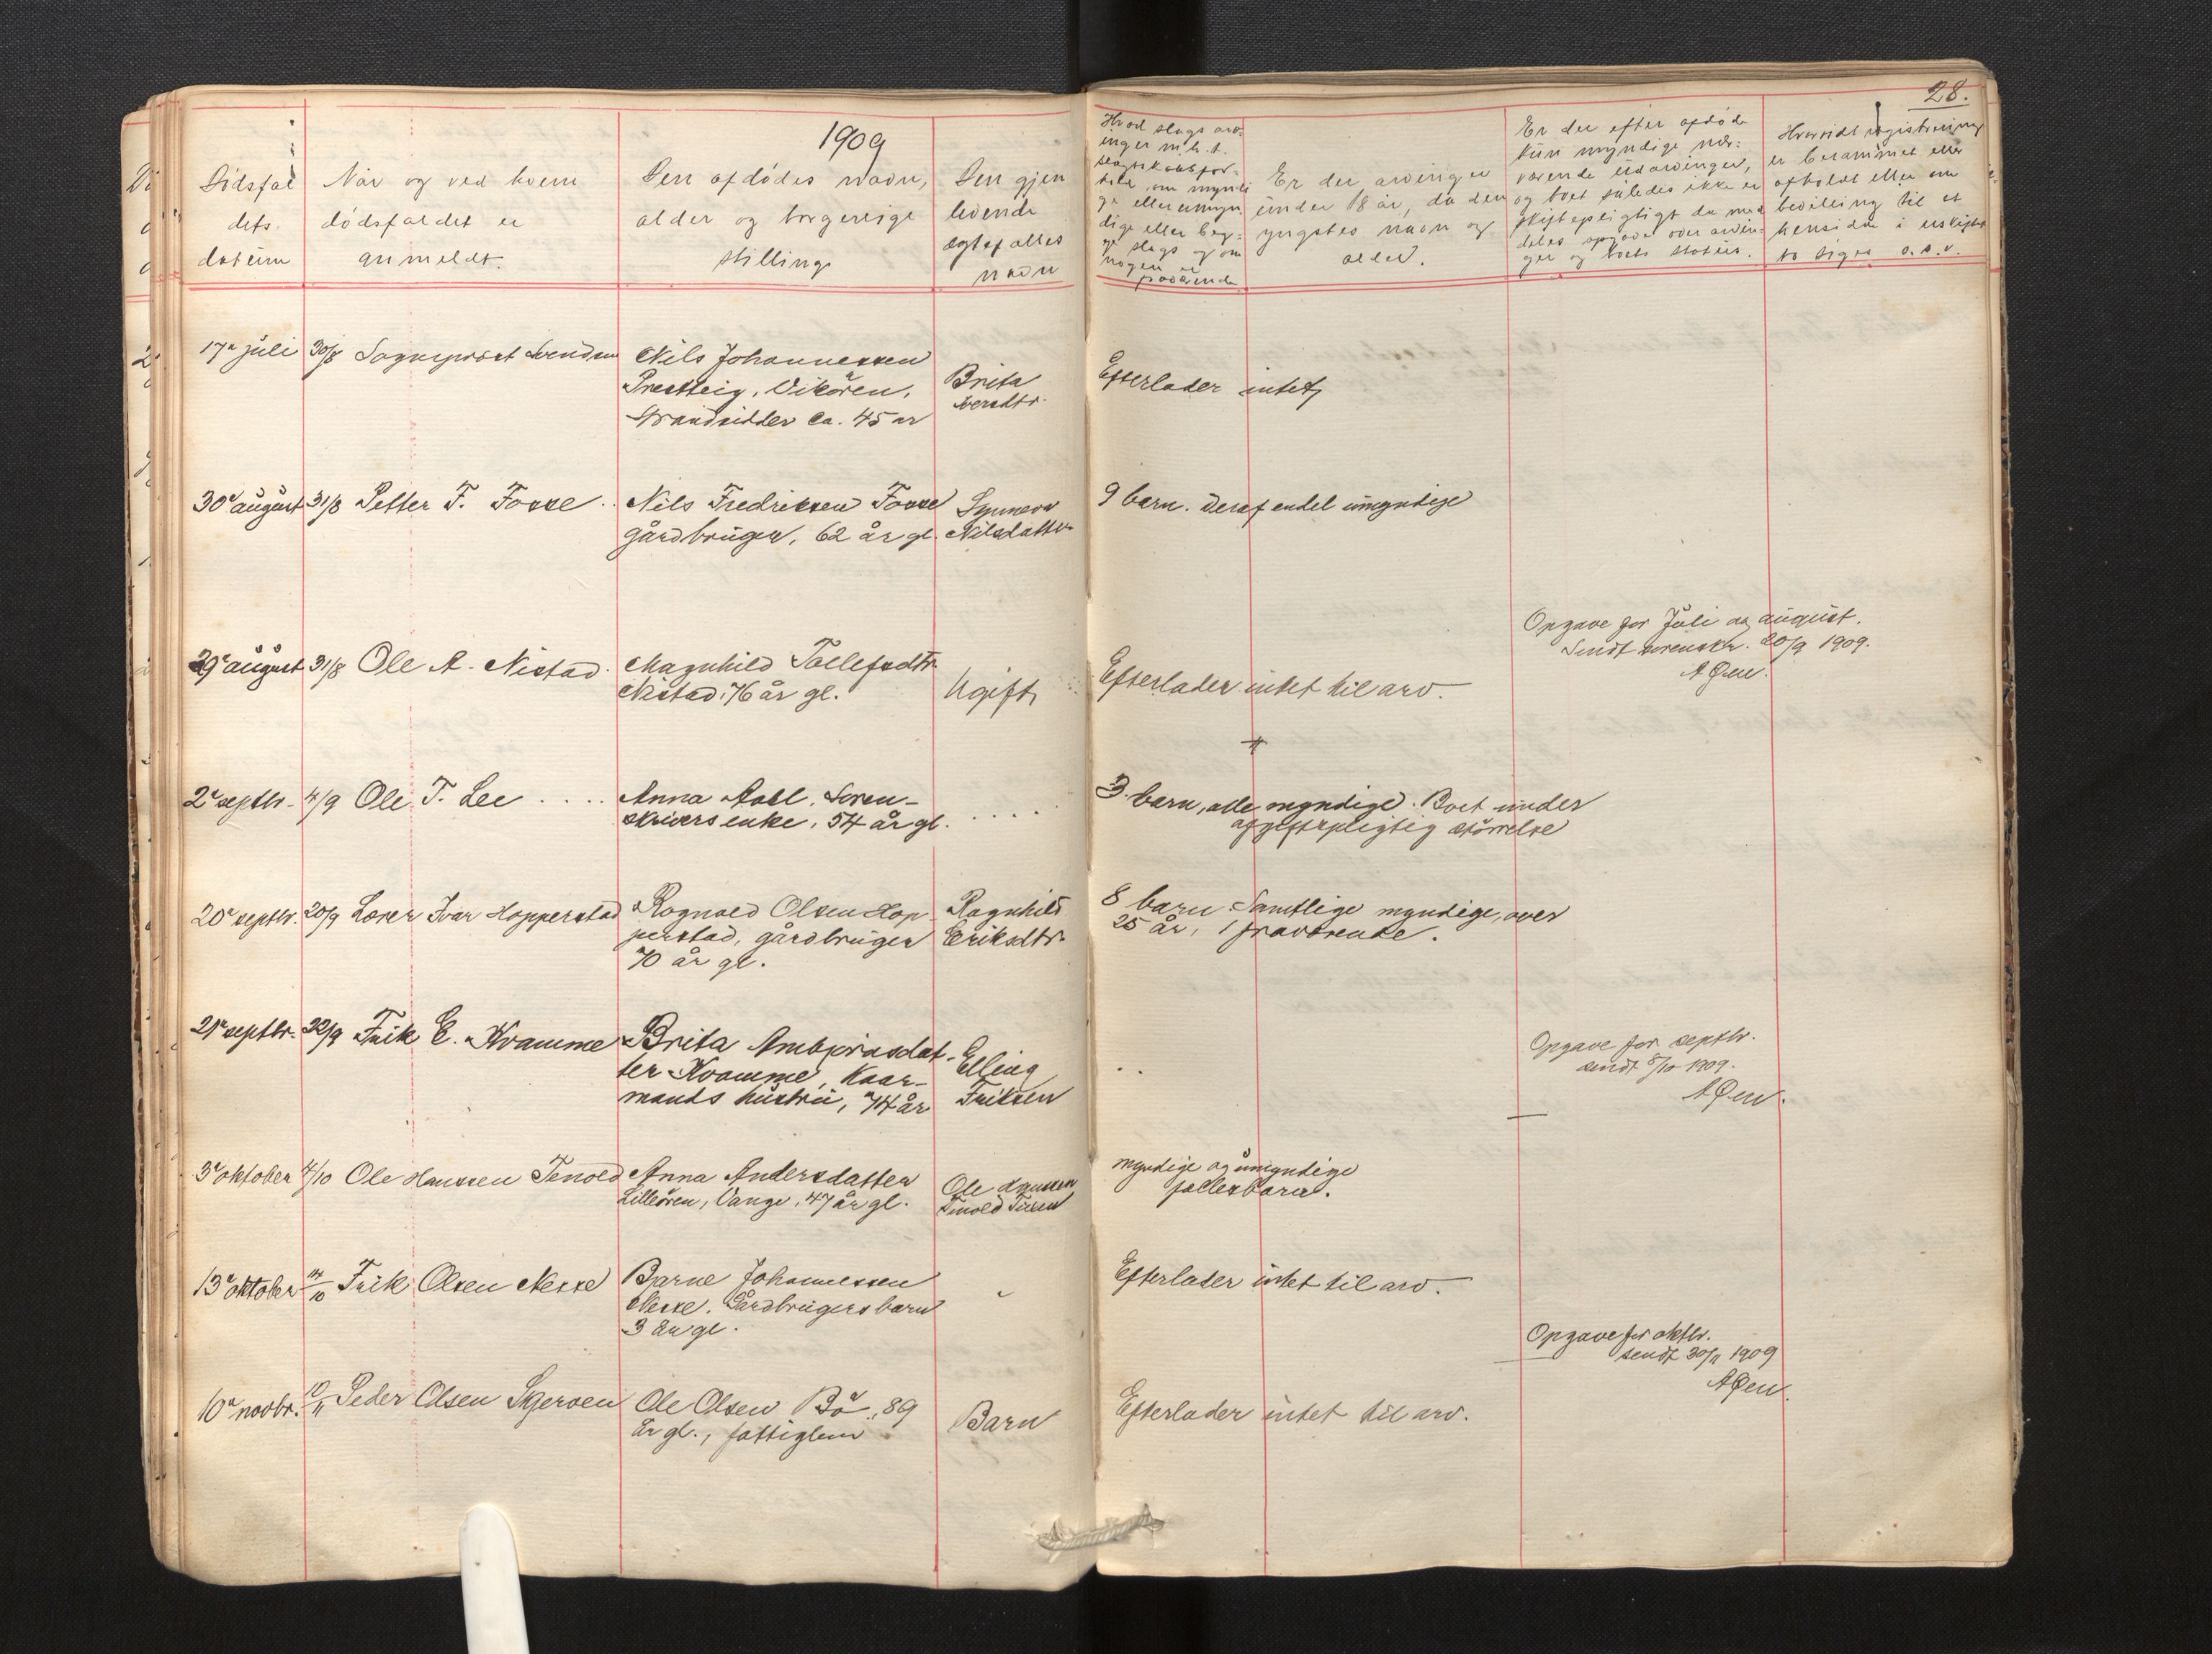 28.
1909
Dødsfal
dets
datum
Når og ved hvem
dødsfaldet er
anmeldt.
Den afdødes navn,
alder og borgerlige
stilling
Den gjen
levende
egtefælles
navn
Hvad slags arv-
inger m.h.t.
slægtskabsfor-
hold, om myndi
ge eller umyn
dige eller beg-
ge slags og om
nogen er
fraværende
Er der arvinger
under 18 år, da den
yngstes navn og
alder.
Er der efter afdøde
kun myndige nær-
værende udarvinger,
og boet således ikke er
skiftepligtigt da med
deles opgave over arvin-
ger og boets status.
Hvorvidt registrering
er berammet eller
afholdt eller om
bevilling til at
hensidde i uskiftet
bo siges o.s.v.
17de juli 30/8 Sogneprest Svendsen Nils Johannessen
Prestteig, Vikøren, Brita
Strandsidder ca. 45 år Iversdtr.
Efterlader intet
30te august 31/8 Petter F. Fosse .. Nils Fredriksen Fosse Synneva
gårdbruger, 62 år gl. Nilsdatter
9 barn. Deraf endel umyndige
Opgave for Juli og august.
Sendt sorenskr. 20/9 1909.
A Øren.
29de august 31/8 Ole A. Nistad. Magnhild Tollefsdtr.
Nistad, 76 år gl. Ugift
Efterlader intet til arv.
2den septbr. 4/9 Ole T. Lee .... Anna Aall, Soren-
skrivers enke, 54 år gl. ....
3 barn, alle myndige. Boet under
afgiftspligtig størrelse
20de septbr. 20/9 Lærer Ivar Hopperstad Rognald Olsen Hop Ragnhild
perstad, gårdbruger Eriksdtr.
70 år gl.
8 barn. Samtlige myndige, over
25 år, 1 fraværende.
21de septbr. 22/9 Erik E. Kvamme Brita Ambjørnsdat- Elling
ter Kvamme, Kaar-
mands hustru, 74 år Eriksen
Opgave for septbr.
sendt 8/10 1909.
A Øren.
3de oktober 4/10 Ole Hanssen Tenold Anna Andersdatter
Lilleøren, Vange, 47 år gl. Ole
Tenold
myndige og umyndige
fællesbarn.
13de oktober 14/10 Erik Olsen Nesse Barne Johannessen
Nesse. Gårdbrugers barn
3 år gl.
Efterlader intet til arv.
Opgave for oktbr.
sendt 30/11 1909
A Øren.
10de novbr. 10/11 Peder Olsen Skjerven Ole Olsen Bø, 89
år gl., fattiglem Barn
Efterlader intet til arv.